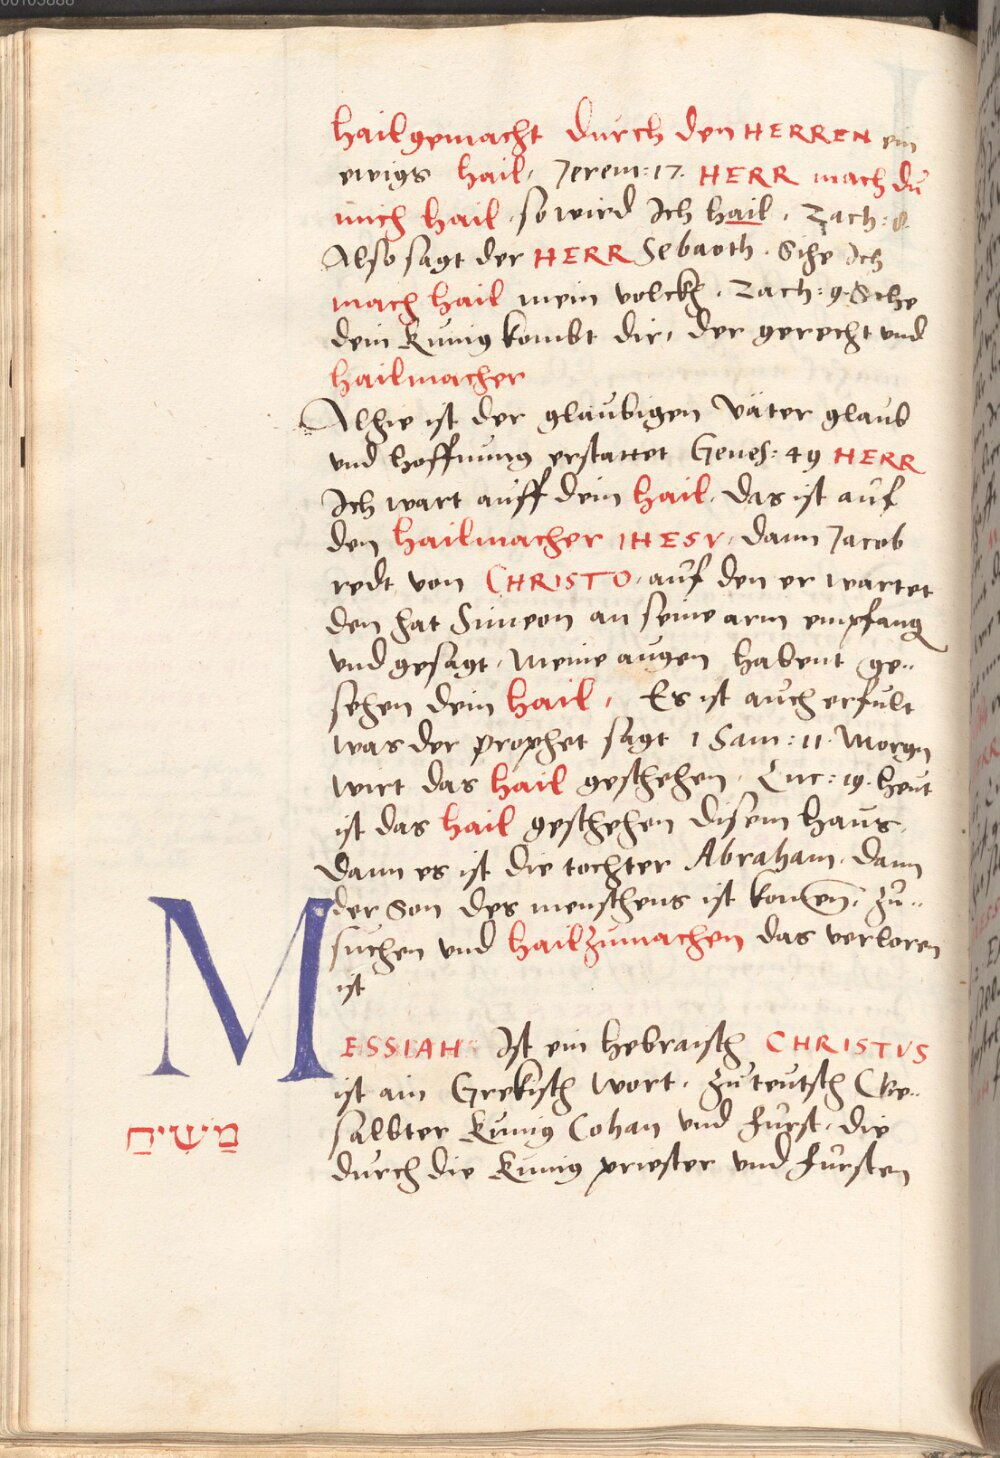 hailgemacht durch den HERREN ein
ewigs hail, Jerem: 17. HERR mach du
mich hail, so wird Ich hail. Zach: 8.
Also sagt der HERR Sebaoth. Sihe Ich
mach hail mein volckh. Zach: 9. Sihe
dein Kunig kombt dir, der gerecht und
hailmacher
Alhie ist der glaubigen Väter glaub
und hoffnung erstattet Genes: 49 HERR
Ich wart auff dein hail. das ist auf
den hailmacher IHESV, dann Jacob
redt von CHRISTO, auf den er wartet
den hat Simeon an seine arm empfang
und gesagt, Meine augen habent ge..
sehen dein hail, Es ist auch erfult
was der prophet sagt 1 Sam: 11. Morgn
wirt das hail geschehen. Luc: 19. heut
ist das hail geschehen disem haus,
dann es ist die tochter Abraham. dann
der Son des menschens ist komen. zu..
suchen und hailzumachen das verloren
ist
MESSIAH Ist ein hebraisch CHRISTVS
ist ain Grekisch wort. zu teutsch Ge..
salbter Kunig Cohan und furst, die
מַשִׁיחַ
durch die Kunig priester und fursten